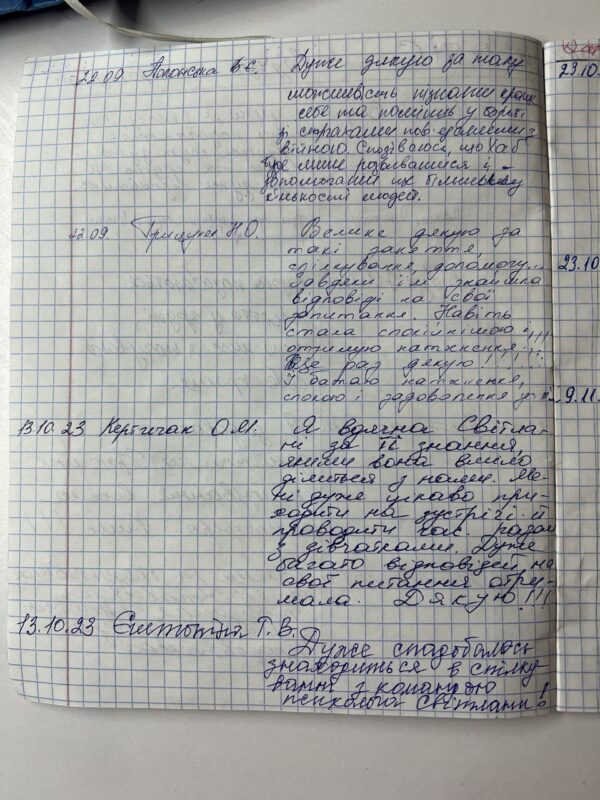 22.09 В.Є. Дуже дякую за таку
можливість пізнавати краще
себе та поміць у боротьбі
зі страхами пов'язаними з
війною. Сподіваюся, що хаб
буде лише розвиватися і
допомагати ще більшій
кількості людей.
22.09. Грицунек Н.О. Велике дякую за
такі заняття,
спілкування, допомогу...
Завдяки їм знайшла
відповіді на свої
запитання. Навіть
стала спокійнішою!!!
отримую натхнення.
Ще раз дякую!!!!!
І бажаю натхнення,
спокою і задоволення
13.10.23 Кертичак О.М. Я вдячна Світла-
ні за її знання,
якими вона вміло
ділиться з нами. Ме-
ні дуже цікаво при-
ходити на зустрічі й
проводити час разом
з дівчатками. Дуже
багато відповідей на
свої питання отри-
мала. Дякую!!!
13.10.23 Г.В.
Дуже сподобалось
знаходиться в спілку
ванні з командою
психолога Світлани!
23.10
23.10
9.11.